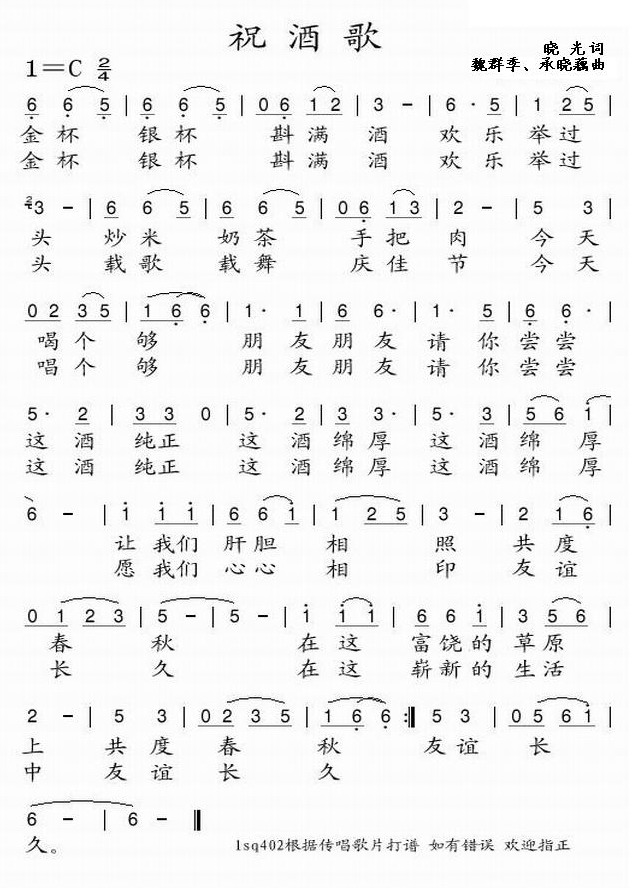 祝酒歌
1=C 2/4
晓光词
魏群季、承晓藕曲
6 6 5 | 6 6 5 | 0 6 1 2 | 3 - | 6· 5 | 1 2 5 |
金杯 银杯 斟满 酒 欢乐举过
金杯 银杯 斟满 酒 欢乐举过
2 3 - | 6 6 5 | 6 6 5 | 0 6 1 3 | 2 - | 5 3 |
头 炒米 奶茶 手把 肉 今天
头 载歌 载舞 庆佳 节 今天
0 2 3 5 | 1 6 6 | 1· 1 | 6 6· | 1· 5 | 6 6 |
喝个 够 朋友朋友 请你尝尝
唱个 够 朋友朋友 请你尝尝
5· 2 | 3 3 0 | 5· 2 | 3 3· | 5· 3 | 5 6 1 |
这酒 纯正 这酒绵厚 这酒绵 厚
这酒 纯正 这酒绵厚 这酒绵 厚
6 - | 1 1 1 | 6 6 1 | 1 2 5 | 3 - | 2 1 6 |
让我们肝胆 相 照 共度
愿我们心心 相 印 友谊
0 1 2 3 | 5 - | 5 - | 1 1 1 | 6 6 1 | 3 5 6 |
春 秋 在这 富饶的草原
长 久 在这 崭新的生活
2 - | 5 3 | 0 2 3 5 | 1 6 6 :‖ 5 3 | 0 5 6 1 |
上 共度 春 秋 友谊 长
中 友谊 长 久
6 - | 6 - ‖
久。
lsq402根据传唱歌片打谱 如有错误 欢迎指正